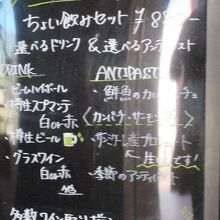 ちょい飲みセット ¥880-
選べるドリンク & 選べるアンティパスト
DRINK
・ビームハイボール
・樽生スプマンテ
白 or 赤
・樽生ビール
・グラスワイン
白 or 赤
他
ANTIPAST
・鮮魚のカルパッチョ
(カンパチ・サーモン
・サンタニーレ産プロシュート
・季節のアンティパスト
多数ワイン取り揃え